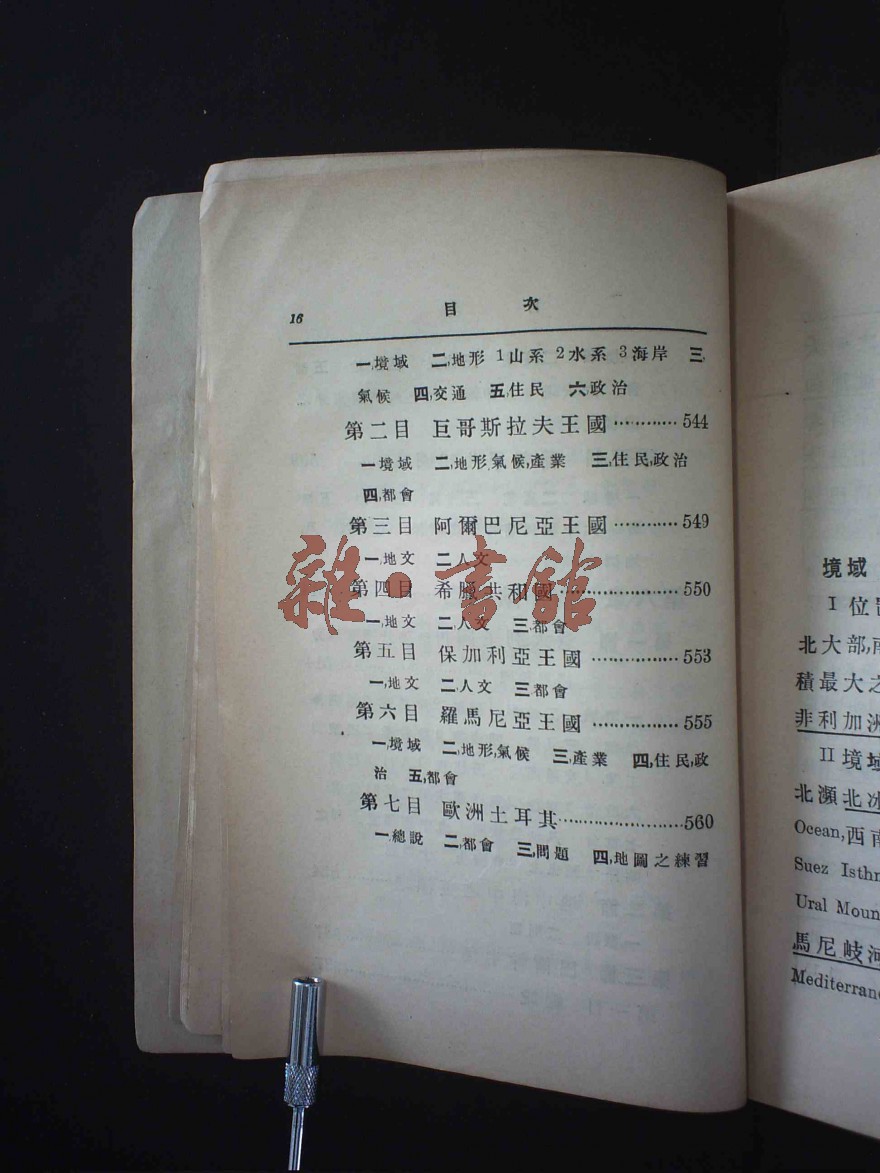 16 目 次
一,境域 二,地形 1山系 2水系 3海岸 三,
氣候 四,交通 五,住民 六,政治
第二目 巨哥斯拉夫王國…………544
一,境域 二,地形,氣候,產業 三,住民,政治
四,都會
第三目 阿爾巴尼亞王國…………549
一,地文 二,人文
第四目 希臘共和國…………550
一,地文 二,人文 三,都會
第五目 保加利亞王國…………553
一,地文 二,人文 三,都會
第六目 羅馬尼亞王國…………555
一,境域 二,地形,氣候 三,產業 四,住民,政
治 五,都會
第七目 歐洲土耳其…………560
一,總說 二,都會 三,問題 四,地圖之練習
雜·書館
境域
I 位置
北大部,南
積最大之
非利加洲
II 境域
北瀕北冰
Ocean,西南
Suez Isthm
Ural Moun
馬尼岐河
Mediterrane